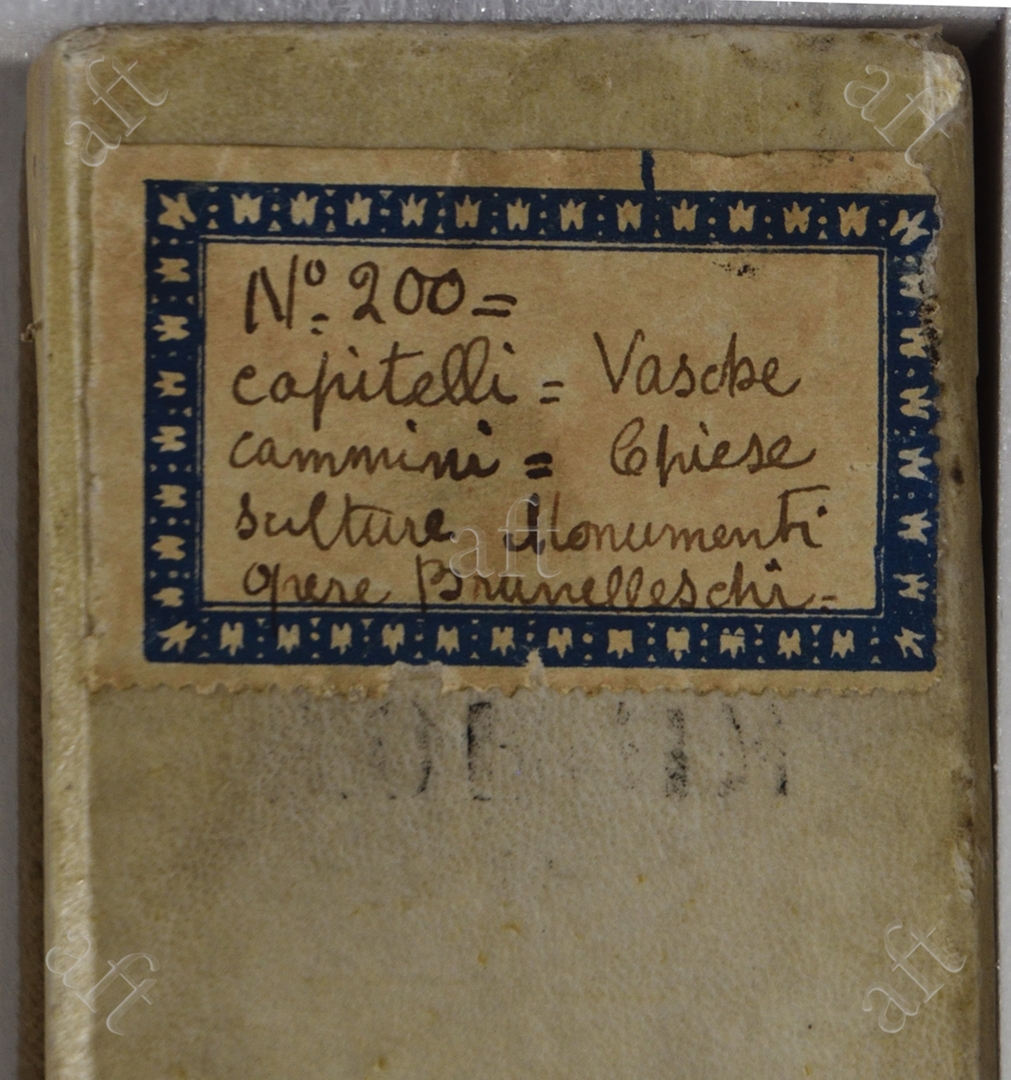 Nº 200 =
capitelli = Vasche
cammini = Chiese
sculture Monumenti
opere Brunelleschi =
aft
aft
aft
aft
aft